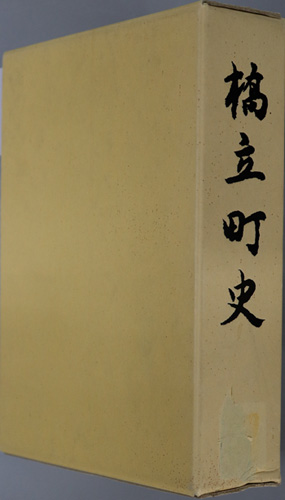 橋立町史